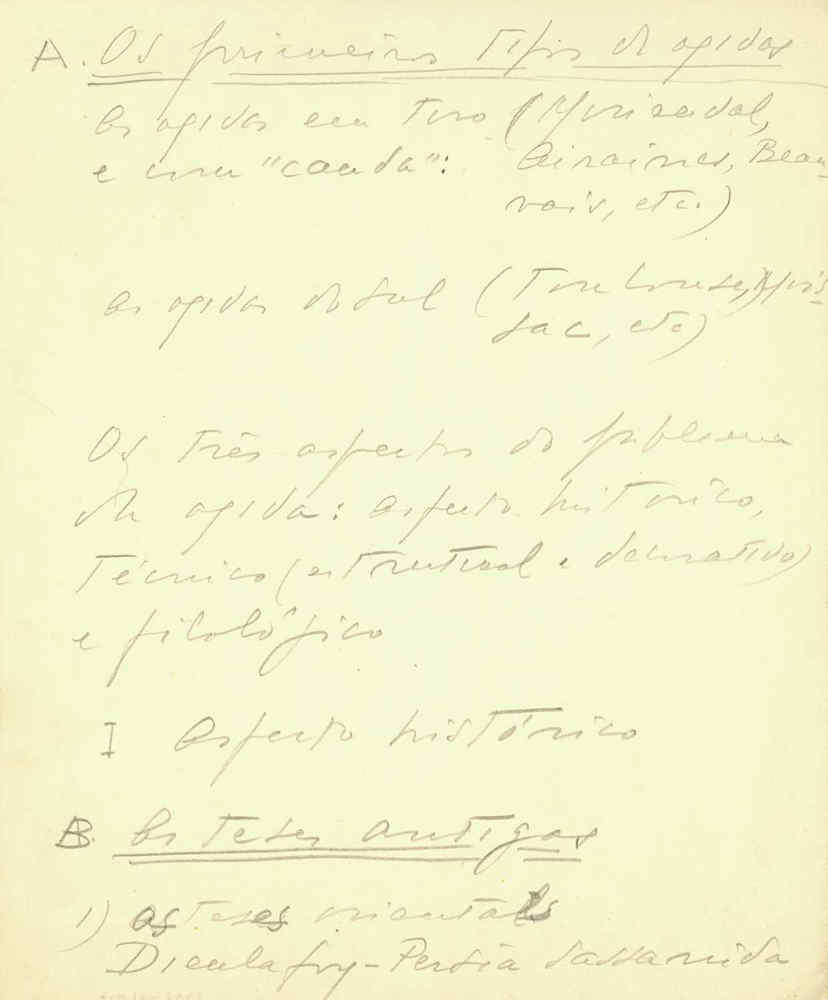 A. Os primeiros tipos de ogivas
As ogivas em toro (Morienval,
e com "cauda": Airaines, Beau-
vais, etc.)
As ogivas do sul (Toulouse, Mois-
sac, etc)
Os três aspectos do problema
da ogiva: aspecto histórico,
técnico (estrutural e decorativo)
e filológico
I Aspecto histórico
B. As teses antigas
1) as teses orientais
Dieulafoy - Persia Sassanida